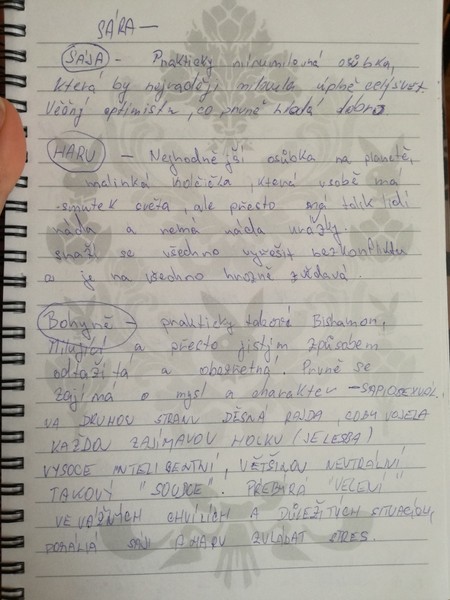 SÁRA —
SÁJA - Prakticky mírumilovná osůbka,
která by nejraději milovala úplně celý svět.
Věčný optimista, co prvně hledá dobro
HARU — Nejhodnější osůbka na planetě,
malinká holčička, která v sobě má
smutek světa, ale přesto má lidi
ráda a nemá ráda urážky.
snaží se všechno vyřešit bez konfliktu
a je na všechno hrozně zvědavá.
Bohyně - prakticky taková Bishamon,
Milující a přesto jistým způsobem
odtažitá a obezřetná. Prvně se
zajímá o mysl a charakter —SAPIOSEXUÁL.
NA DRUHOU STRANU DĚSNÁ RAJDA, COBY VOJELA
KAŽDOU ZAJÍMAVOU HOLKU (JE LESBA)
VYSOCE INTELIGENTNÍ, VĚTŠINOU NEUTRÁLNÍ
TAKOVÝ "SOUDCE". PŘEBÍRÁ "VELENÍ"
VE VÁŽNÝCH CHVÍLÍCH A DŮLEŽITÝCH SITUACÍCH,
POMÁHÁ SÁJI A HARU ZVLÁDAT STRES.